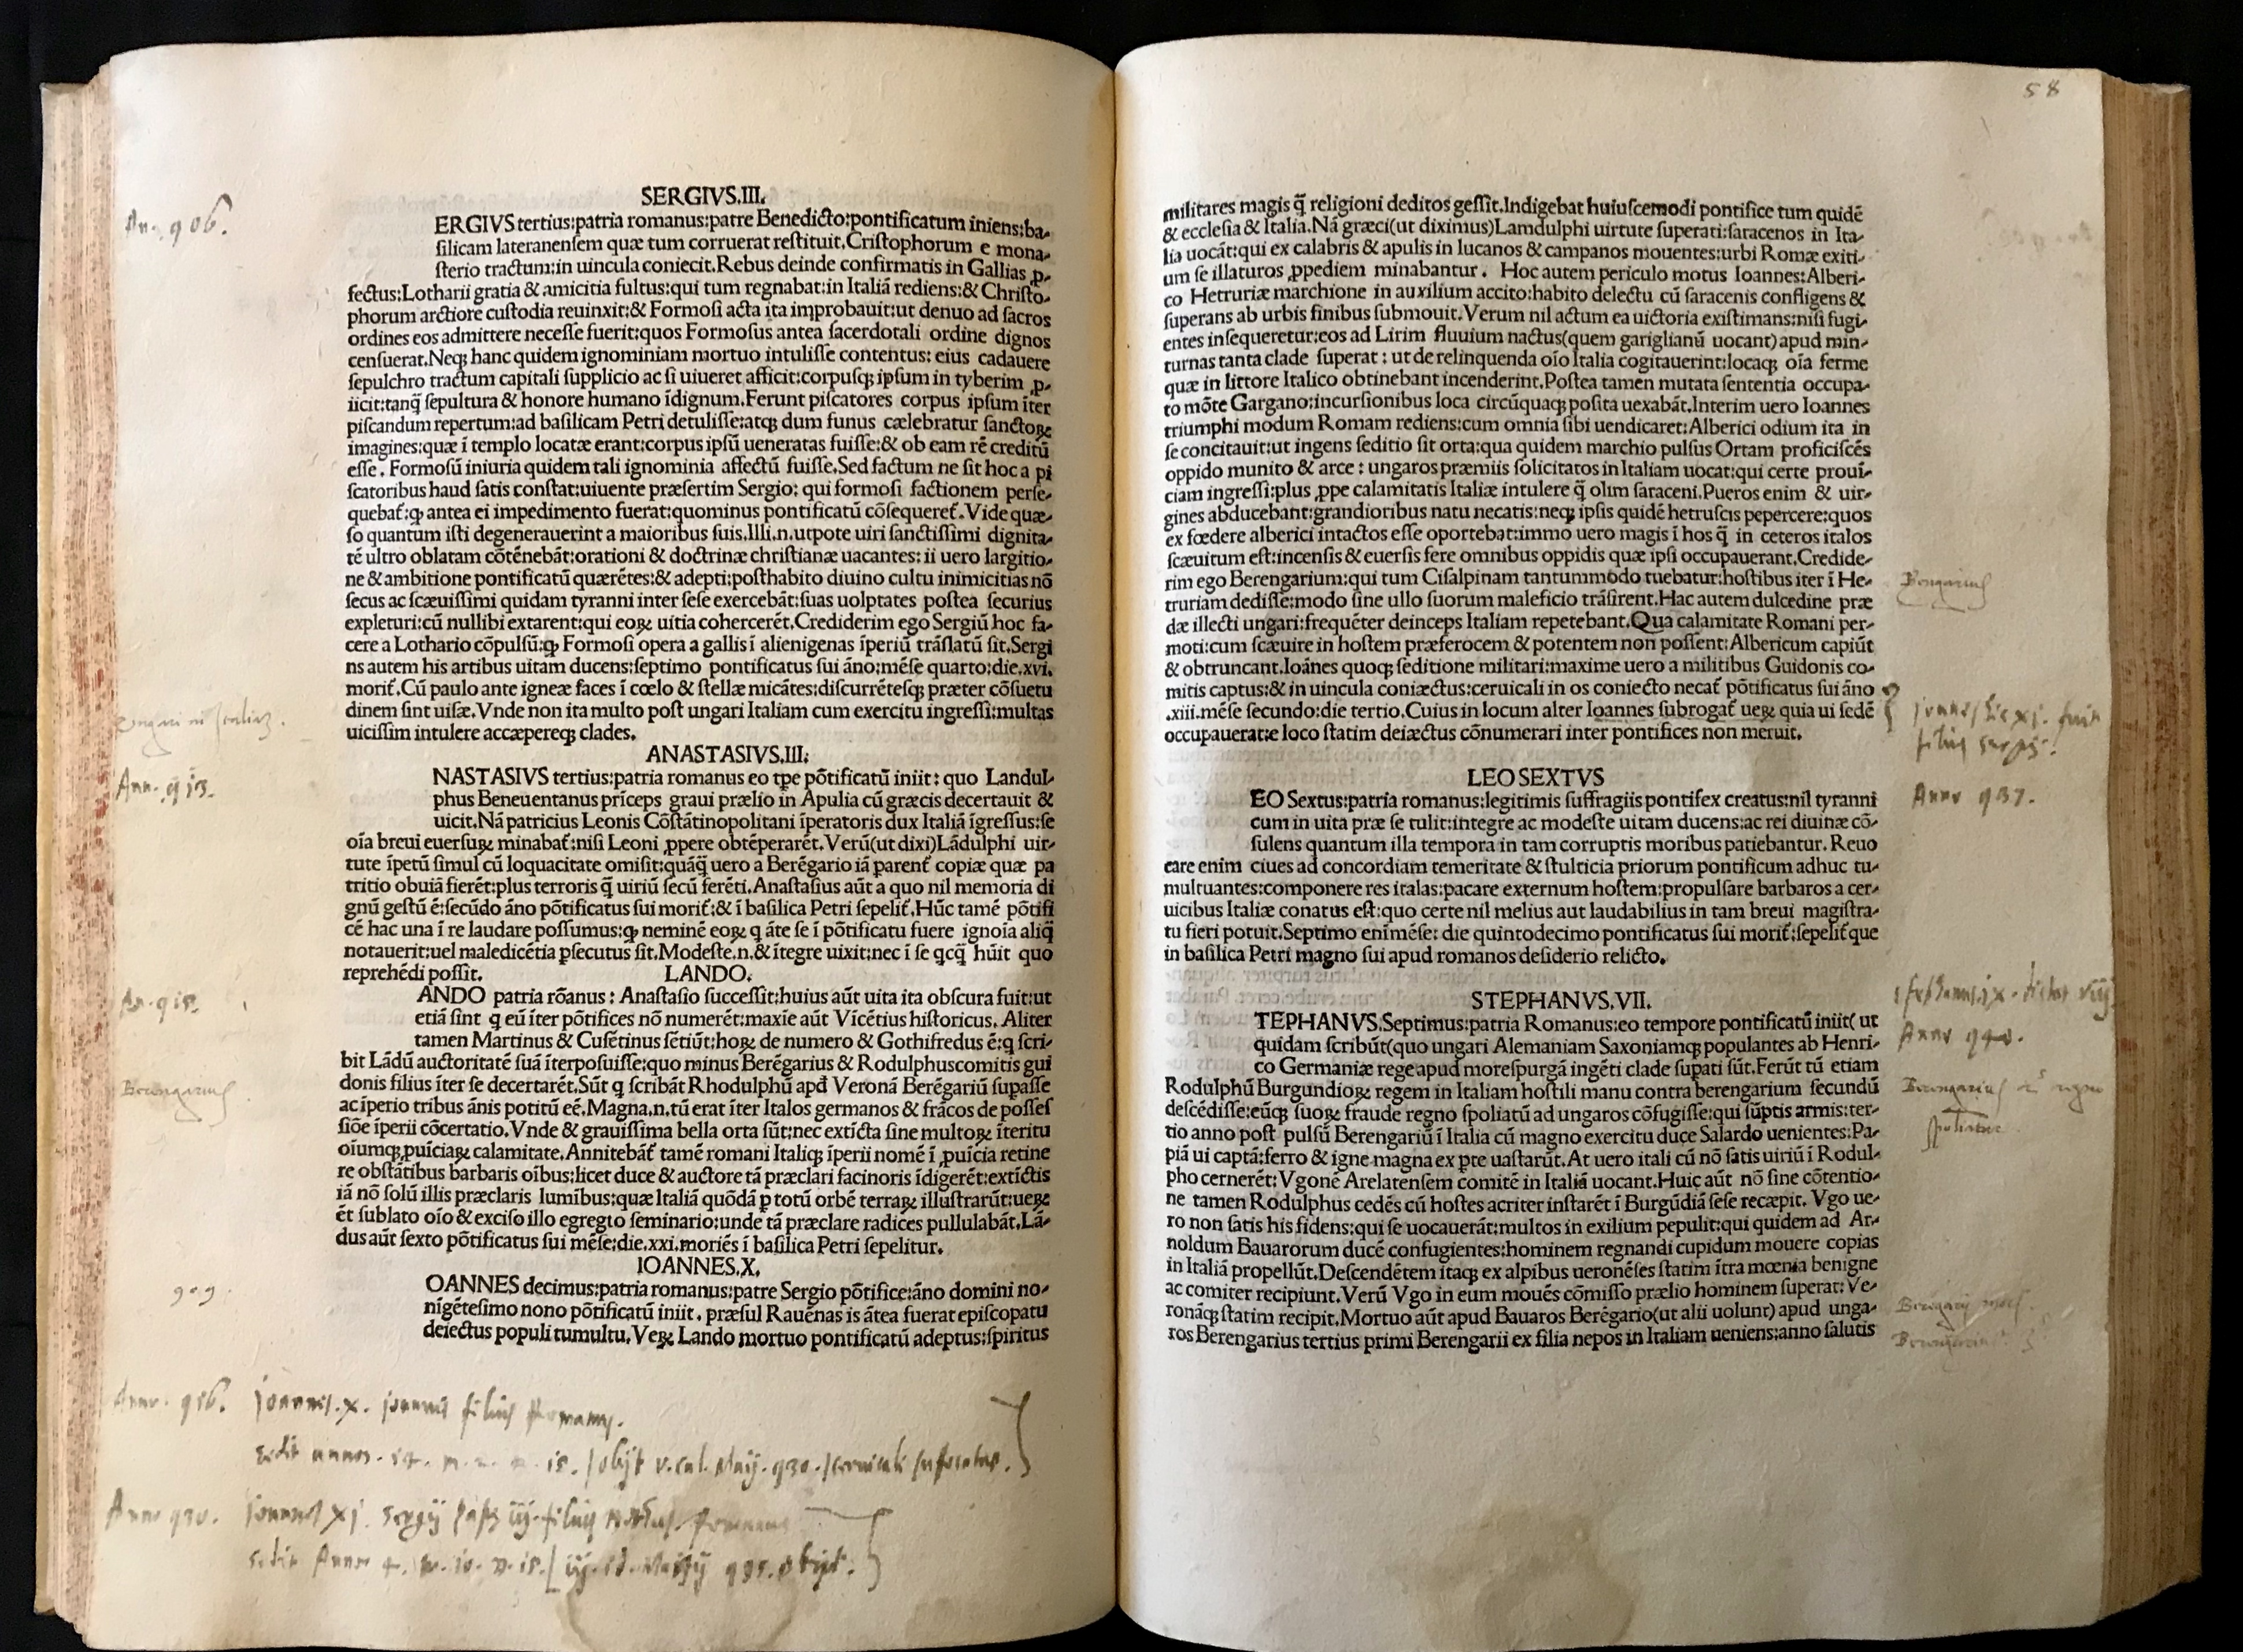 An. 906.
SERGIVS.III.
ERGIVS tertius:patria romanus:patre Benedicto:pontificatum iniens:ba-
silicam lateranensem quæ tum corruerat restituit.Cristophorum e mona-
sterio tractum:in uincula coniecit.Rebus deinde confirmatis in Gallias ꝓ-
fectus:Lotharii gratia & amicitia fultus:qui tum regnabat:in Italiā rediens:& Christo-
phorum arctiore custodia reuinxit:& Formosi acta ita improbauit:ut denuo ad sacros
ordines eos admittere necesse fuerit:quos Formosus antea sacerdotali ordine dignos
censuerat.Neqꝫ hanc quidem ignominiam mortuo intulisse contentus: eius cadauere
sepulchro tractum capitali supplicio ac si uiueret afficit:corpusqꝫ ipsum in tyberim ꝓ-
iicit:tanq̄ sepultura & honore humano īdignum.Ferunt piscatores corpus ipsum īter
piscandum repertum:ad basilicam Petri detulisse:atqꝫ dum funus cælebratur sanctoꝝ
imagines:quæ ī templo locatæ erant:corpus ipsū ueneratas fuisse:& ob eam rē creditū
esse. Formosū iniuria quidem tali ignominia affectū fuisse.Sed factum ne sit hoc a pi
scatoribus haud satis constat:uiuente præsertim Sergio: qui formosi factionem perse-
quebat̄:qꝫ antea ei impedimento fuerat:quominus pontificatū cōsequeret̄.Vide quæ-
so quantum isti degenerauerint a maioribus suis.Illi.n.utpote uiri sanctissimi dignita-
tē ultro oblatam cōtēnebāt:orationi & doctrinæ christianæ uacantes: ii uero largitio-
ne & ambitione pontificatū quærētes:& adepti:posthabito diuino cultu inimicitias nō
secus ac scæuissimi quidam tyranni inter sese exercebāt:suas uolptates postea securius
expleturi:cū nullibi extarent:qui eoꝝ uitia cohercerēt.Crediderim ego Sergiū hoc fa-
cere a Lothario cōpulsū:qꝫ Formosi opera a gallis ī alienigenas īperiū trāslatū sit.Sergi
ns autem his artibus uitam ducens:septimo pontificatus sui āno:mēse quarto:die.xvi.
morit̄.Cū paulo ante igneæ faces ī cœlo & stellæ micātes:discurrētesqꝫ præter cōsuetu
dinem sint uisæ.Vnde non ita multo post ungari Italiam cum exercitu ingressi:multas
uicissim intulere accæpereqꝫ clades.
ANASTASIVS.III:
Ann. 913.
NASTASIVS tertius:patria romanus eo tpe pōtificatū iniit: quo Landul-
phus Beneuentanus prīceps graui prælio in Apulia cū græcis decertauit &
uicit.Nā patricius Leonis Cōstātinopolitani īperatoris dux Italiā īgressus:se
oīa breui euersuꝝ minabat̄:nisi Leoni ꝓpere obtēperarēt.Verū(ut dixi)Lādulphi uir-
tute īpetū simul cū loquacitate omisit:quāq̄ uero a Berēgario iā parent̄ copiæ quæ pa
tritio obuiā fierēt:plus terroris q̄ uiriū secū ferēti.Anastasius aūt a quo nil memoria di
gnū gestū ē:secūdo āno pōtificatus sui morit̄:& ī basilica Petri sepelit̄.Hūc tamē pōtifi
cē hac una ī re laudare possumus:qꝫ neminē eoꝝ q āte se ī pōtificatu fuere ignoīa aliq̄
notauerit:uel maledicētia ꝑsecutus sit.Modeste.n.& ītegre uixit:nec ī se qcq̄ hūit quo
reprehēdi possit.
LANDO.
An. 915.
ANDO patria rōanus: Anastasio successit:huius aūt uita ita obscura fuit:ut
etiā sint q eū īter pōtifices nō numerēt:maxīe aūt Vīcētius historicus. Aliter
tamen Martinus & Cusētinus sētiūt:hoꝝ de numero & Gothifredus ē:q scri-
bit Lādū auctoritatē suā īterposuisse:quo minus Berēgarius & Rodulphuscomitis gui
donis filius īter se decertarēt.Sūt q scribāt Rhodulphū apd̄ Veronā Berēgariū supasse
ac īperio tribus ānis potitū eē.Magna.n.tū erat īter Italos germanos & frācos de posses
siōe īperii cōcertatio.Vnde & grauissima bella orta sūt:nec extīcta sine multoꝝ īteritu
oīumqꝫ ꝓuīciaꝝ calamitate.Annitebāt̄ tamē romani Italiqꝫ īperii nomē ī ꝓuīcia retine
re obstātibus barbaris oībus:licet duce & auctore tā præclari facinoris īdigerēt:extīctis
iā nō solū illis præclaris lumībus:quæ Italiā quōdā ꝑ totū orbē terraꝝ illustrarūt:ueꝝ
ēt sublato oīo & exciso illo egregto seminario:unde tā præclare radices pullulabāt.Lā-
dus aūt sexto pōtificatus sui mēse:die.xxi.moriēs ī basilica Petri sepelitur.
IOANNES.X.
909.
OANNES decimus:patria romanus:patre Sergio pōtifice:āno domini no-
nigētesimo nono pōtificatū iniit. præsul Rauēnas is ātea fuerat episcopatu
deiectus populi tumultu.Veꝝ Lando mortuo pontificatū adeptus:spiritus
Berengarius
Anno. 916. Joannes.x. joannis filius Romanus.
Anno 930. Joannes xj. Sergij papæ iij. filius
58
militares magis q̄ religioni deditos gessit.Indigebat huiuscemodi pontifice tum quidē
& ecclesia & Italia.Nā græci(ut diximus)Lamdulphi uirtute superati:saracenos in Ita-
lia uocāt:qui ex calabris & apulis in lucanos & campanos mouentes:urbi Romæ exiti-
um se illaturos ꝓpediem minabantur. Hoc autem periculo motus Ioannes:Alberi-
co Hetruriæ marchione in auxilium accito:habito delectu cū saracenis confligens &
superans ab urbis finibus submouit.Verum nil actum ea uictoria existimans:nisi fugi-
entes insequeretur:eos ad Lirim fluuium nactus(quem gariglianū uocant)apud min-
turnas tanta clade superat: ut de relinquenda oīo Italia cogitauerint:locaqꝫ oīa ferme
quæ in littore Italico obtinebant incenderint.Postea tamen mutata sententia occupa-
to mōte Gargano:incursionibus loca circūquaqꝫ posita uexabāt.Interim uero Ioannes
triumphi modum Romam rediens:cum omnia sibi uendicaret:Alberici odium ita in
se concitauit:ut ingens seditio sit orta:qua quidem marchio pulsus Ortam proficiscēs
oppido munito & arce: ungaros præmiis solicitatos in Italiam uocat:qui certe prouī-
ciam ingressi:plus ꝓpe calamitatis Italiæ intulere q̄ olim saraceni.Pueros enim & uir-
gines abducebant:grandioribus natu necatis:neqꝫ ipsis quidē hetruscis pepercere:quos
ex fœdere alberici intactos esse oportebat:immo uero magis ī hos q̄ in ceteros italos
scæuitum est:incensis & euersis fere omnibus oppidis quæ ipsi occupauerant.Credide-
rim ego Berengarium:qui tum Cisalpinam tantummodo tuebatur:hostibus iter ī He-
truriam dedisse:modo sine ullo suorum maleficio trāsirent.Hac autem dulcedine præ
dæ illecti ungari:frequēter deinceps Italiam repetebant.Qua calamitate Romani per-
moti:cum scæuire in hostem præferocem & potentem non possent:Albericum capiūt
& obtruncant.Ioānes quoqꝫ seditione militari:maxime uero a militibus Guidonis co-
mitis captus:& in uincula coniæctus:ceruicali in os coniecto necat̄ pōtificatus sui āno
.xiii.mēse secundo:die tertio.Cuius in locum alter Ioannes subrogat̄ ueꝝ quia ui sedē
occupauerat:e loco statim deiæctus cōnumerari inter pontifices non meruit.
LEO SEXTVS
Anno 937.
EO Sextus:patria romanus:legitimis suffragiis pontifex creatus:nil tyranni
cum in uita præ se tulit:integre ac modeste uitam ducens:ac rei diuinæ cō-
sulens quantum illa tempora in tam corruptis moribus patiebantur. Reuo
care enim ciues ad concordiam temeritate & stulticia priorum pontificum adhuc tu-
multuantes:componere res italas:pacare externum hostem:propulsare barbaros a cer-
uicibus Italiæ conatus est:quo certe nil melius aut laudabilius in tam breui magistra-
tu fieri potuit.Septimo enimēse: die quintodecimo pontificatus sui morit̄:sepelit̄que
in basilica Petri magno sui apud romanos desiderio relicto.
STEPHANVS.VII.
TEPHANVS.Septimus:patria Romanus:eo tempore pontificatū iniit( ut
quidam scribūt(quo ungari Alemaniam Saxoniamqꝫ populantes ab Henri-
co Germaniæ rege apud morespurgā ingēti clade supati sūt.Ferūt tū etiam
Rodulphū Burgundioꝝ regem in Italiam hostili manu contra berengarium secundū
descēdisse:eūqꝫ suoꝝ fraude regno spoliatū ad ungaros cōfugisse:qui sūptis armis:ter-
tio anno post pulsū Berengariū ī Italia cū magno exercitu duce Salardo uenientes:Pa-
piā ui captā:ferro & igne magna ex pte uastarūt.At uero itali cū nō satis uiriū ī Rodul-
pho cernerēt:Vgonē Arelatensem comitē in Italiā uocant.Huic aūt nō sine cōtentio-
ne tamen Rodulphus cedēs cū hostes acriter instarēt ī Burgūdiā sese recæpit. Vgo ue-
ro non satis his fidens:qui se uocauerāt:multos in exilium pepulit:qui quidem ad Ar-
noldum Bauarorum ducē confugientes:hominem regnandi cupidum mouere copias
in Italiā propellūt.Descendētem itaqꝫ ex alpibus ueronēses statim ītra mœnia benigne
ac comiter recipiunt.Verū Vgo in eum mouēs cōmisso prælio hominem superat:Ve-
ronāqꝫ statim recipit.Mortuo aūt apud Bauaros Berēgario(ut alii uolunt) apud unga-
ros Berengarius tertius primi Berengarii ex filia nepos in Italiam ueniens:anno salutis